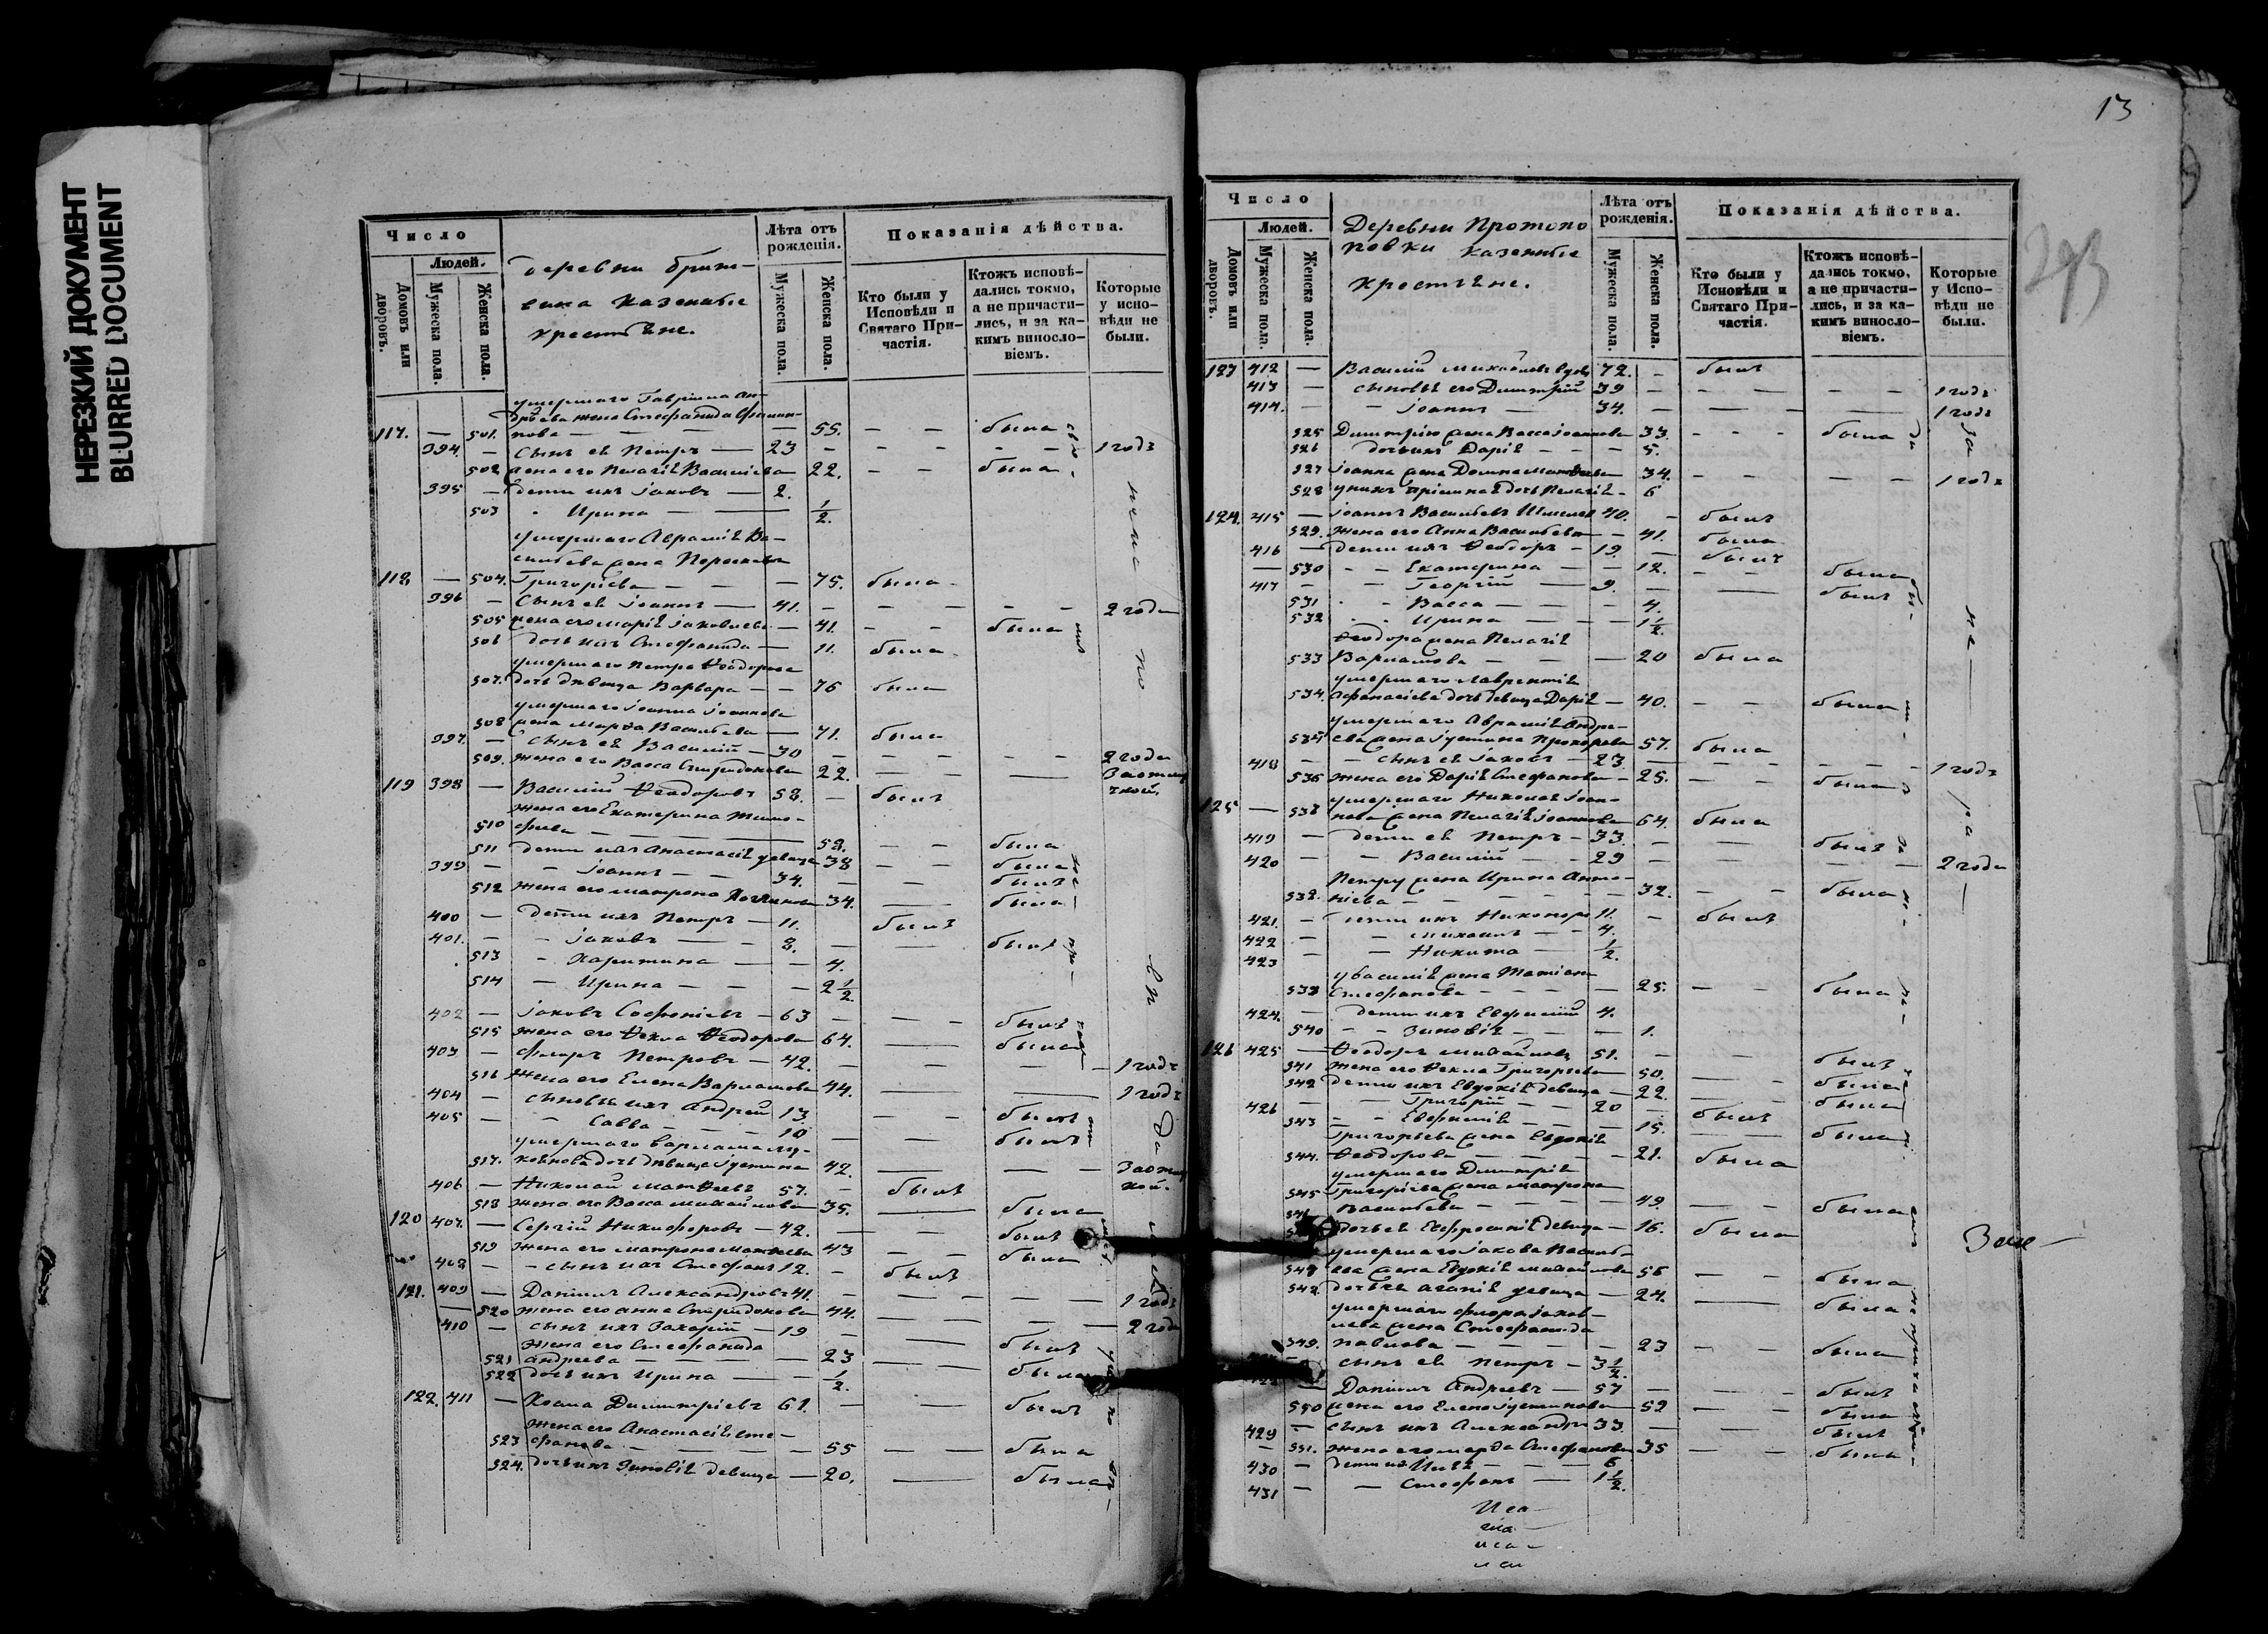 НЕРЕЗКИЙ ДОКУМЕНТ
BLURRED DOCUMENT
Число
Людей.
Домовъ или дворовъ.
Мужеска пола.
Женска пола.
казенные
крестьяне.
Лѣта отъ рожденія.
Мужеска пола.
Женска пола.
Показанія дѣйства.
Кто были у Исповѣди и Святаго Причастія.
Ктожъ исповѣдались токмо, а не причастились, и за какимъ винословіемъ.
Которые у исповѣди не были.
умершаго Гавріила Ан-
дрѣева жена Стефанида
117. — 501. — 55. — — была
394. — Сынъ ея Петръ — 23 — — — — 1 годъ
502 жена его Пелагія Василіева — 22. — — была
395 — дети ихъ Іаковъ — 2.
503 Ирина — 1/2.
умершаго Аврамія Ва-
сильева жена
118 — 504. Григоріева — — — 75. была
396 — Сынъ ея Іоаннъ — 41. — — — — — 2 года
505 жена его Марія Іаковлева — 41. — — была
506 дочь ихъ Стефанида — 11. была
умершаго Петра Ѳеодорова
507. дочь дѣвица Варвара — — 76 была
умершаго Іоанна Іоаннова
508 жена Марѳа Васильева — 71. была
397. — сынъ ея Василій — 30 — — — — — 2 года
509. жена его Васса Спиридонова 22. — — —
119 398 — Василій Ѳеодоровъ 58. — былъ
жена его Екатерина Тимо-
510 фѣева — — — 58. — — была
511 дети ихъ Анастасія дѣвица 38 — — была
399 — — Іоаннъ — — 34. — — былъ
512 жена его Матрона 34. — была
400 — дети ихъ Петръ — 11. былъ
401. — — Іаковъ — — 8. — — былъ
513 - Харитина — — 4.
514 — Ирина — — — 2 1/2.
402 — Іаковъ Софоніевъ — 63 — — — былъ
515 жена его Ѳекла Ѳеодорова 64. — была
403 — Флоръ Петровъ — 42. — — — — 1 годъ
516 жена его Елена Варламова 44. — — 1 годъ
404 — сыновья ихъ Андрей 13. — — былъ
405 — — Савва — — — 10 — — былъ
517. дочь дѣвица Іустина 42. — — —
406 — Николай Матѳеевъ 57. — былъ
518 жена его Васса Михайлова 35. — была
120 407. — Сергій Никифоровъ — 42. — — былъ
519 жена его Матрона Матѳеева 43 — — была
408 — — сынъ ихъ Стефанъ 12. — былъ
121. 409 — Даніилъ Александровъ 41. — — — — — 1 годъ
— 520 жена его Анна Спиридонова 44. — — — — 2 года
410 — сынъ ихъ Захарій — 19 — — былъ
жена его Стефанида
521 Андреева — — — — 23 — была
522 дочь ихъ Ирина — — 1/2.
122. 411 — Косма Димитріевъ 61. — — былъ
жена его Анастасія Сте-
523 фанова — — — — 55 — — была
524. дочь ихъ Зиновія девица — 20. — была
13
293
Число
Людей.
Домовъ или дворовъ.
Мужеска пола.
Женска пола.
Деревни Протопо
повки казенные
крестьяне.
Лѣта отъ рожденія.
Мужеска пола.
Женска пола.
Показанія дѣйства.
Кто были у Исповѣди и Святаго Причастія.
Ктожъ исповѣдались токмо, а не причастились, и за какимъ винословіемъ.
Которые у Исповѣди не были.
123 412 — Василій Михайловъ вдовъ 72. — былъ
413 — сыновья его Димитрій 39 — — — — 1 годъ
414. — — Іоаннъ — 34. — — — — 1 годъ
525 Димитрію жена Васса Іоаннова 33. - - - была
526 дочь ихъ Дарія — — — 5.
527 Іоанна жена Домна Матѳеева 34. — — — — 1 годъ
528 дочь Пелагія — 6
124. 415 — Іоаннъ Васильевъ 40. — былъ
529. жена его Анна Васильева — 41. была
416 — дети ихъ Ѳеодоръ — 19. — былъ
— 530 - - Екатерина — — 12. — — была
417 — — Георгій — 9. — — былъ
531 - - Васса — — — 4.
532 - - Ирина — — — 1 1/2.
Ѳеодора жена Пелагія
533 Варламова — — — 20 была
умершаго Лаврентія
534. Афанасіева дочь девица Дарія — 40. — — была
умершаго Аврамія Андре-
535 ева жена Іустина Прохорова 57. была
418 — — сынъ ея Іаковъ — 23. — — — — — 1 годъ
536 жена его Дарія Стефанова — 25. — — была
умершаго Николая Іоан-
125 — 537 нова жена Пелагія Іоаннова 64. была
419 — дети ея Петръ — 33. — — былъ
420 — — Василій — — 29 — — — 2 года
Петру жена Ирина Анто-
538. ніева — — — — — 32. — — была
421. — дети ихъ Никаноръ 11. — былъ
422 — — Михаилъ — — 4.
423 — — Никита — 1/2.
у Василія жена Татіана
539 Стефанова — — — — 25. — — была
424. — дети ихъ Евфимій 4.
540 — — Зиновія — — — 1.
126 425 — Ѳеодоръ Михайловъ 51. — — былъ
541 жена его Ѳекла Григорьева — 50. — — была
542 дети ихъ Евдокія девица — 22. — — была
426 — — Григорій — — 20 — былъ
543 — — Евфимія — — — 15. — — была
Григорьева жена Евдокія
544. Ѳеодорова — — — — 21. была
умершаго Димитрія
545 Григоріева жена Матрона
Васильева — — — — 49. — — была
дочь ея Евфросинія девица — 16. была
умершаго Іакова Василь-
ева жена Евдокія Михайлова 56 — — была
548 дочь ея Агапія девица — 24. — была
умершаго Флора Іаков-
лева жена Стефанида
549. Павлова — — — — 23 — — была
сынъ ея Петръ — 3 1/2.
— Даніилъ Андреевъ — 57 — — — былъ
550 жена его Елена Іустинова — 52 — — была
429 — сынъ ихъ Александръ 33. — — былъ
— 551. жена его Марѳа Стефанова 35 — — была
430 — дети ихъ Илія — — — 6
431 — — Стефанъ — 1 1/2.